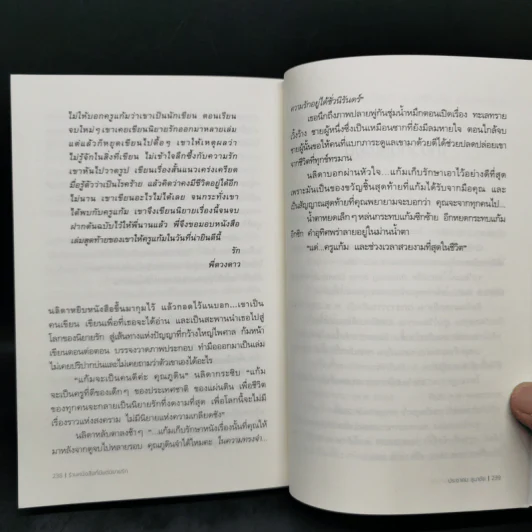 ไม่ให้บอกครูแก้มว่าเขาเป็นนักเขียน ตอนเรียน
จบใหม่ๆ เขาเคยเขียนนิยายรักออกมาหลายเล่ม
แต่แล้วก็หยุดเขียนไปดื้อๆ เขาให้เหตุผลว่า
ไม่รู้จักในสิ่งที่เขียน ไม่เข้าใจลึกซึ้งกับความรัก
เขาหันไปวาดรูป เขียนเรื่องสั้นแนวเคร่งเครียด
เมื่อรู้ตัวว่าเป็นโรคร้าย แล้วคิดว่าคงมีชีวิตอยู่ได้อีก
ไม่นาน เขาเขียนอะไรไม่ได้เลย จนกระทั่งเขา
ได้พบกับครูแก้ม เขาจึงเขียนนิยายเรื่องนี้จนจบ
ฝากต้นฉบับไว้ให้พี่นานแล้ว พี่จึงขอมอบหนังสือ
เล่มสุดท้ายของเขาให้ครูแก้มในวันที่น่ายินดีนี้
รัก
พี่ดวงดาว
นลิตาหยิบหนังสือขึ้นมากุมไว้ แล้วกอดไว้แนบอก...เขาเป็น
คนเขียน เขียนเพื่อที่เธอจะได้อ่าน และเป็นสะพานนำเธอไปสู่
โลกของนิยายรัก สู่เส้นทางแห่งปัญญาที่กว้างใหญ่ไพศาล ก้มหน้า
เขียนตอนต่อตอน บรรจงวาดภาพประกอบ ทำมือออกมาเป็นเล่ม
ไม่เคยปริปากบ่นและไม่เคยถามว่าตัวเองได้อะไร
"แก้มจะเป็นคนดีค่ะ คุณภูดิน" นลิตากระซิบ "แก้ม
จะเป็นครูที่ดีของเด็กๆ ของประเทศชาติ ของแผ่นดิน เพื่อชีวิต
ของทุกคนจะกลายเป็นนิยายรักที่งดงามที่สุด เพื่อโลกนี้จะไม่มี
เรื่องราวแห่งสงคราม ไม่มีนิยายแห่งความเกลียดชัง"
นลิตาหลับตาลงช้าๆ "...แก้มเก็บรักษาหนังเรื่องนั้นที่คุณให้
มาหลังจากดูจบไปหลายรอบ คุณภูดินจำได้ไหมคะ...ในความทรงจำ...
ความรักอยู่ได้ชั่วนิรันดร์"
เธอนึกถึงภาพปลายพู่กันชุ่มน้ำหมึกตอนเปิดเรื่อง ทะเลทราย
เวิ้งร้าง ชายผู้หนึ่งซึ่งเป็นเหมือนซากที่ยังมีลมหายใจ ตอนใกล้จบ
ชายผู้นั้นขอให้คนที่แบกภาระและดูแลเขามาด้วยดีได้ช่วยปลดปล่อยเขา
จากชีวิตที่ทุกข์ทรมาน
นลิตาบอกผ่านหัวใจ...แก้มเก็บรักษาเอาไว้อย่างดีที่สุด
เพราะมันเป็นของขวัญชิ้นสุดท้ายที่แก้มได้รับจากมือคุณ และ
เป็นสัญญาณสุดท้ายที่คุณพยายามจะบอกว่า คุณจะจากทุกคนไป...
น้ำตาหยดเล็กๆ หล่นกระทบแก้มซีกซ้าย อีกหยดกระทบแก้ม
อีกซีก คำอุทิศพร่าลายอยู่ในม่านน้ำตา
"แด่...ครูแก้ม และช่วงเวลาสวยงามที่สุดในชีวิต"